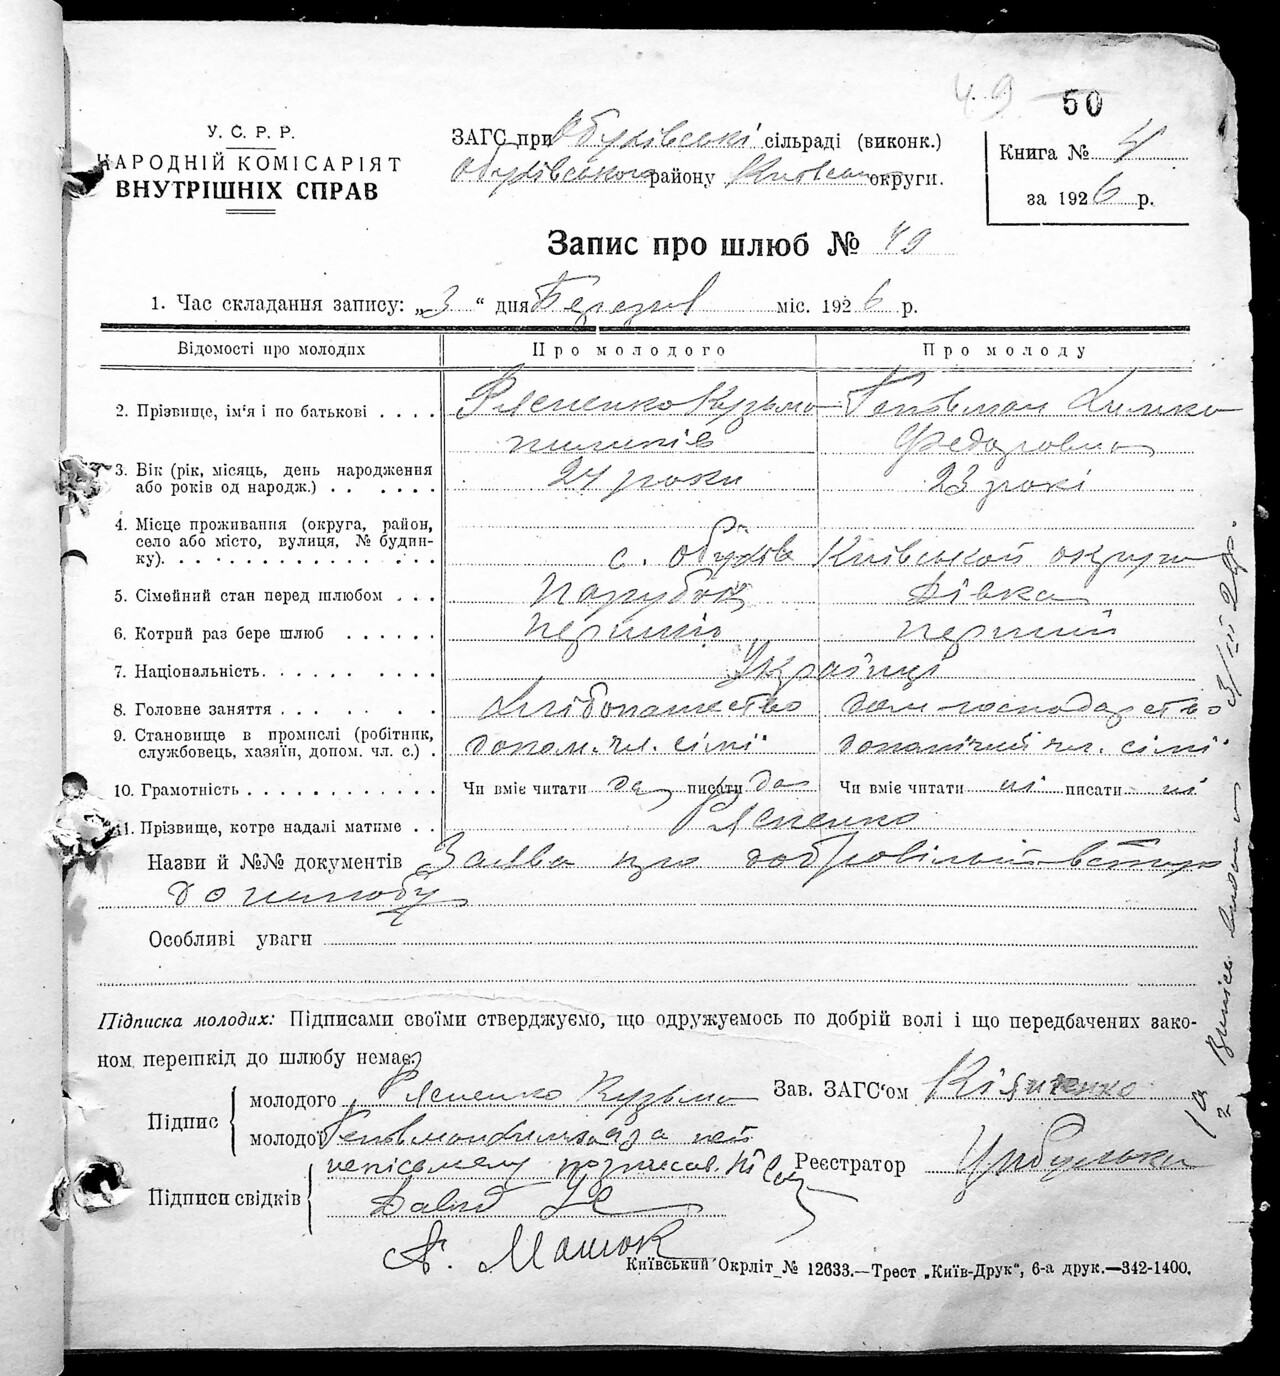 49 50
У. С. Р. Р.
НАРОДНІЙ КОМІСАРІЯТ
ВНУТРІШНІХ СПРАВ
ЗАГС при Обухівські сільраді (виконк.)
Обухівського району Київськ округи.
Книга № 4
за 1926 р.
Запис про шлюб № 49
1. Час складання запису: „3“ дня Березня міс. 1926 р.
Відомості про молодих Про молодого Про молоду
2. Прізвище, ім'я і по батькові . . . . Рясненко Кузьма
Пилипів Федоровна
3. Вік (рік, місяць, день народження
або років од народж.) . . . . . . 24 роки 23 років
4. Місце проживання (округа, район,
село або місто, вулиця, № будин-
ку). . . . . . . . . . . . . с. Обухів Київської округи
5. Сімейний стан перед шлюбом . . . Парубок Дівка
6. Котрий раз бере шлюб . . . . . . перший перший
7. Національність. . . . . . . . . Українці
8. Головне заняття . . . . . . . . Хлібопашество дом-господарство
9. Становище в промислі (робітник,
службовець, хазяїн, допом. чл. с.) . допом. чл. сімї допомічний чл. сімї
10. Грамотність . . . . . . . . . . . . Чи вміє читати да писати да Чи вміє читати ні писати ні
11. Прізвище, котре надалі матиме . . Рясненко
Назви й №№ документів Заява про добровільний вступ
до шлюбу
Особливі уваги
Підписка молодих: Підписами своїми стверджуємо, що одружуємось по добрій волі і що передбачених зако-
ном перешкід до шлюбу немає.
Підпис
молодого Рясненко Кузьма
Зав. ЗАГС'ом
молодої а за неї
неписьмену розписав.
Реєстратор Цибулька
Підписи свідків
Давид
А. Машок
Київський Окрліт № 12633.—Трест „Київ-Друк“, 6-а друк.—342-1400.
3/III 26р.